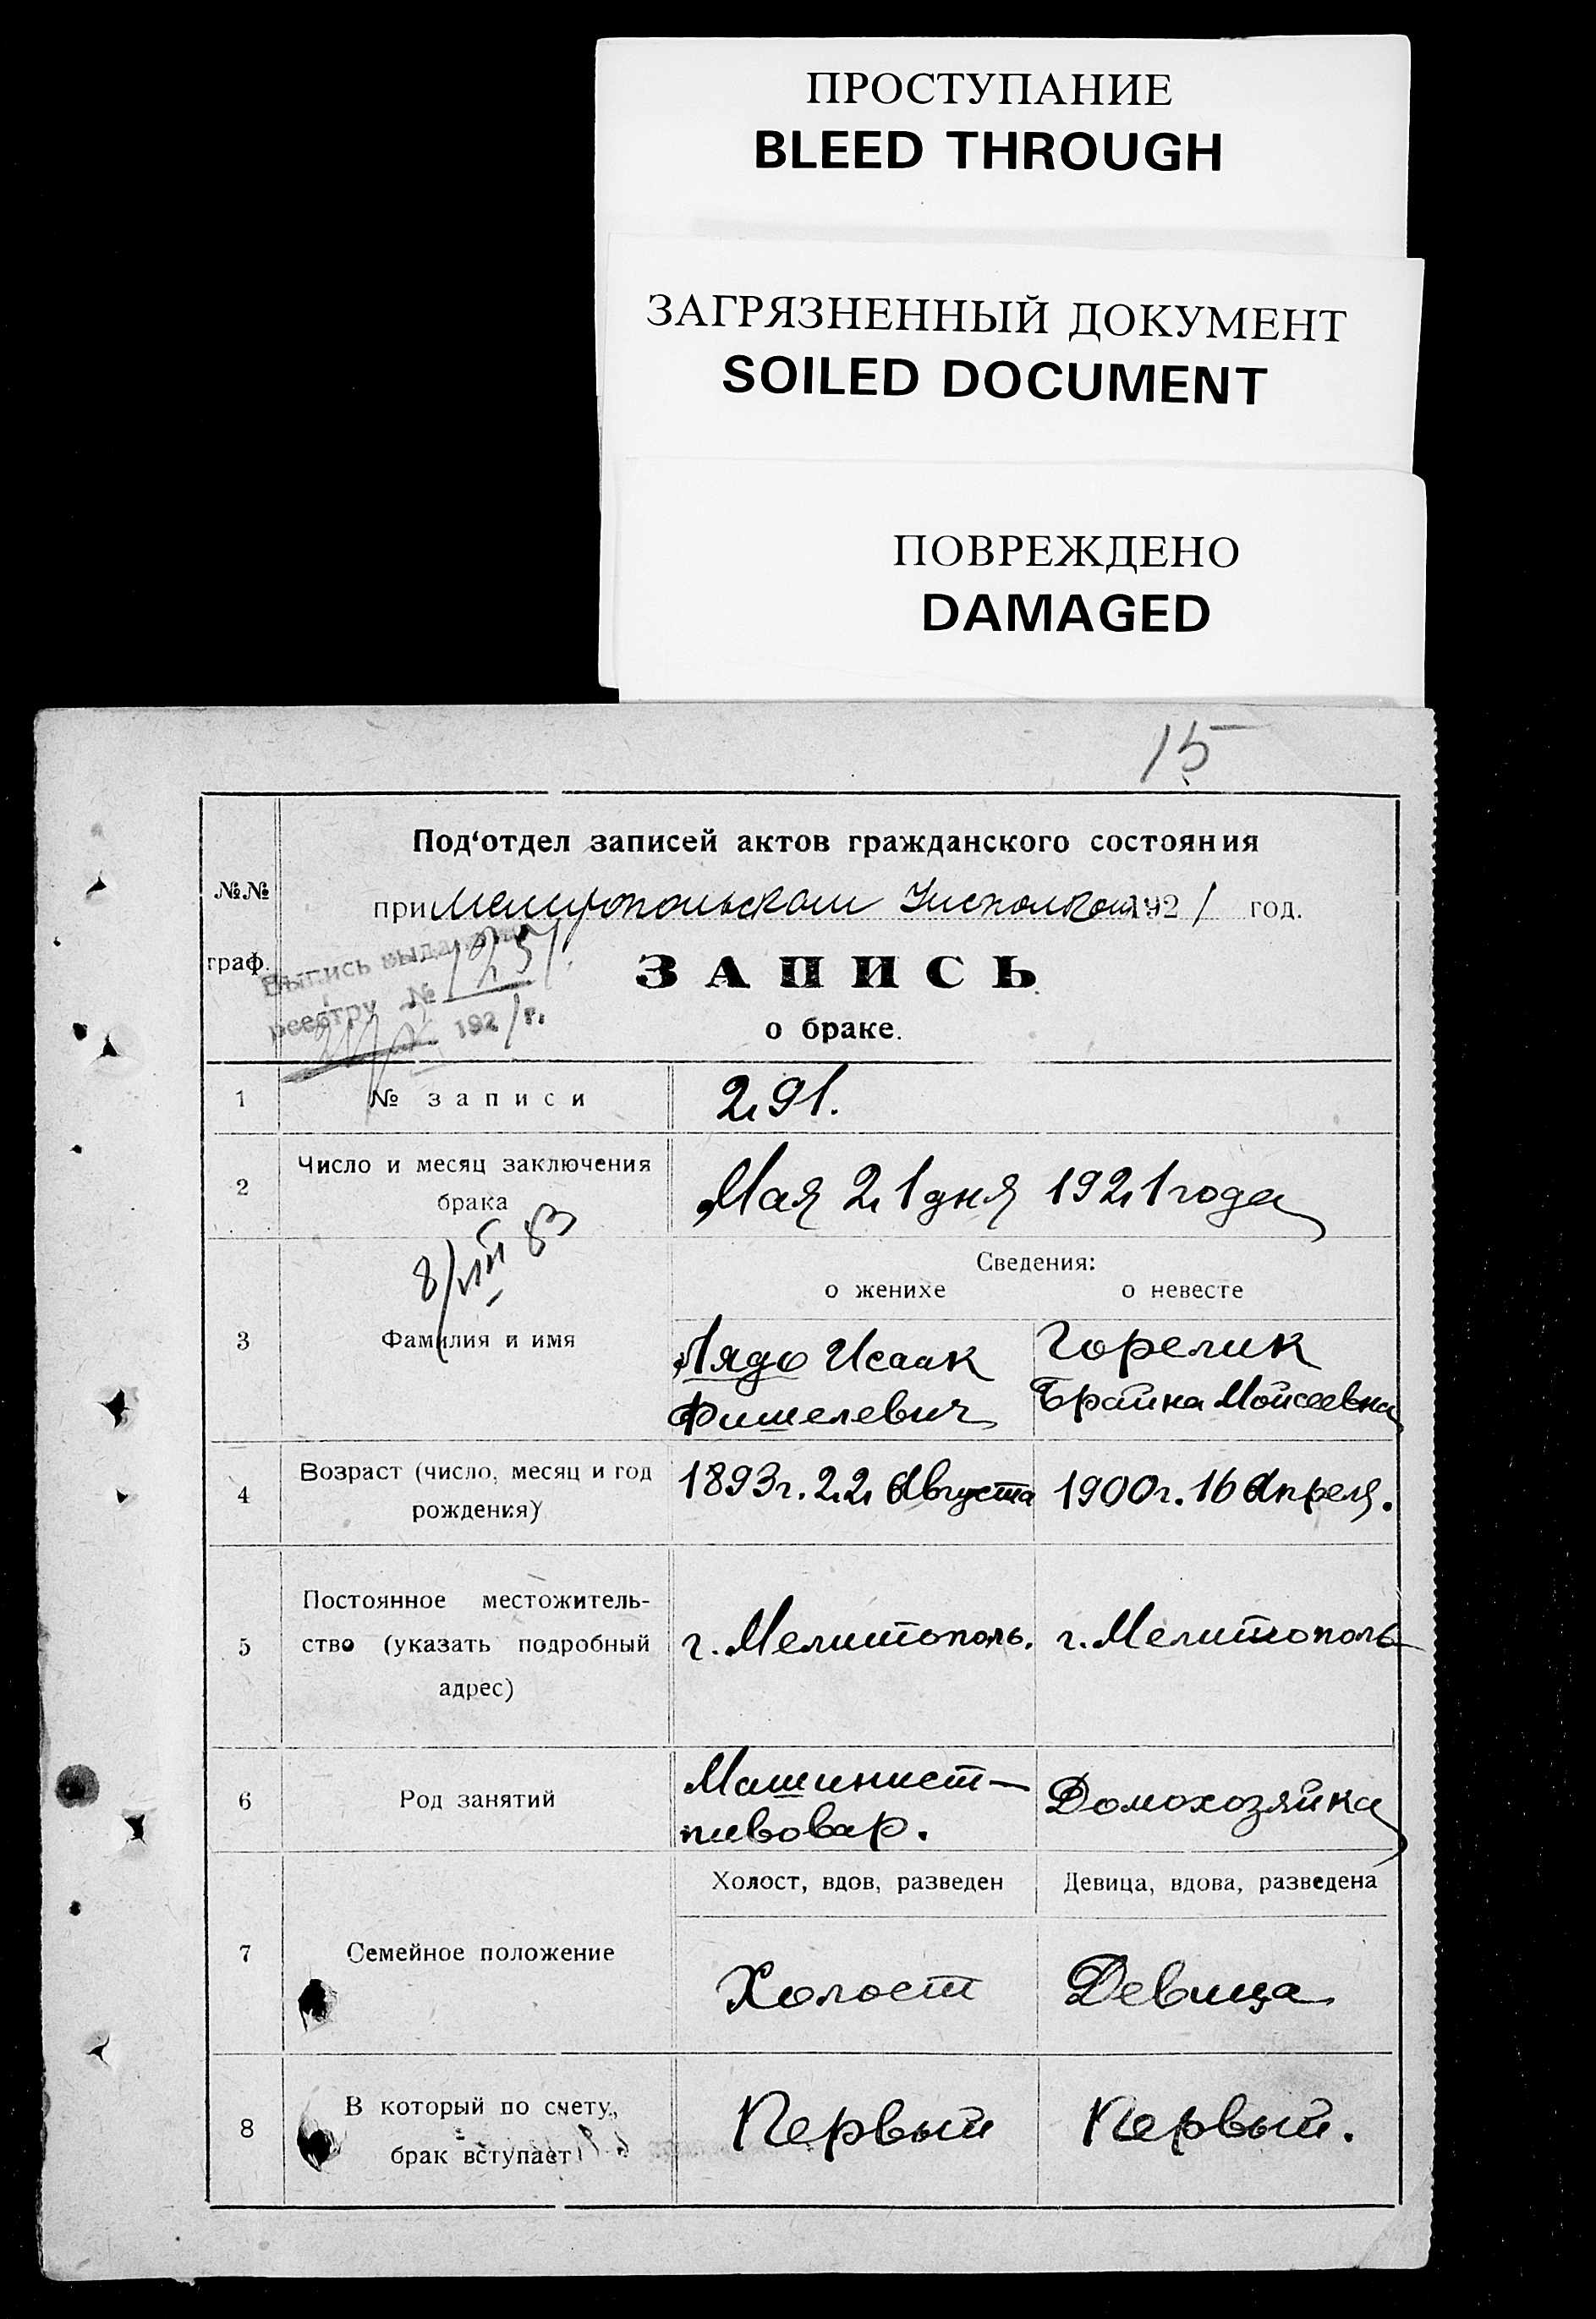 ПРОСТУПАНИЕ
BLEED THROUGH
ЗАГРЯЗНЕННЫЙ ДОКУМЕНТ
SOILED DOCUMENT
ПОВРЕЖДЕНО
DAMAGED
15
№№ граф.
Под‘отдел записей актов гражданского состояния
при Мелитопольском Уисполкоме 1921 год.
Выпись выдана
реестру №
1921 г.
ЗАПИСЬ
о браке.
1 № записи 291.
2 Число и месяц заключения
брака
Мая 21 дня 1921 года
8/VIII 83
Сведения:
о женихе о невесте
3 Фамилия и имя
Лядо Исаак
Фишелевич
Горелик
Брайна Мойсеевна
4 Возраст (число, месяц и год
рождения)
1893 г. 22 Августа 1900 г. 16 Апреля.
5 Постоянное местожитель-
ство (указать подробный
адрес)
г. Мелитополь. г. Мелитополь
6 Род занятий
Машинист-
пивовар.
Домохозяйка
Холост, вдов, разведен Девица, вдова, разведена
7 Семейное положение
Холост Девица
8 В который по счету,
брак вступает
Первый Первый.